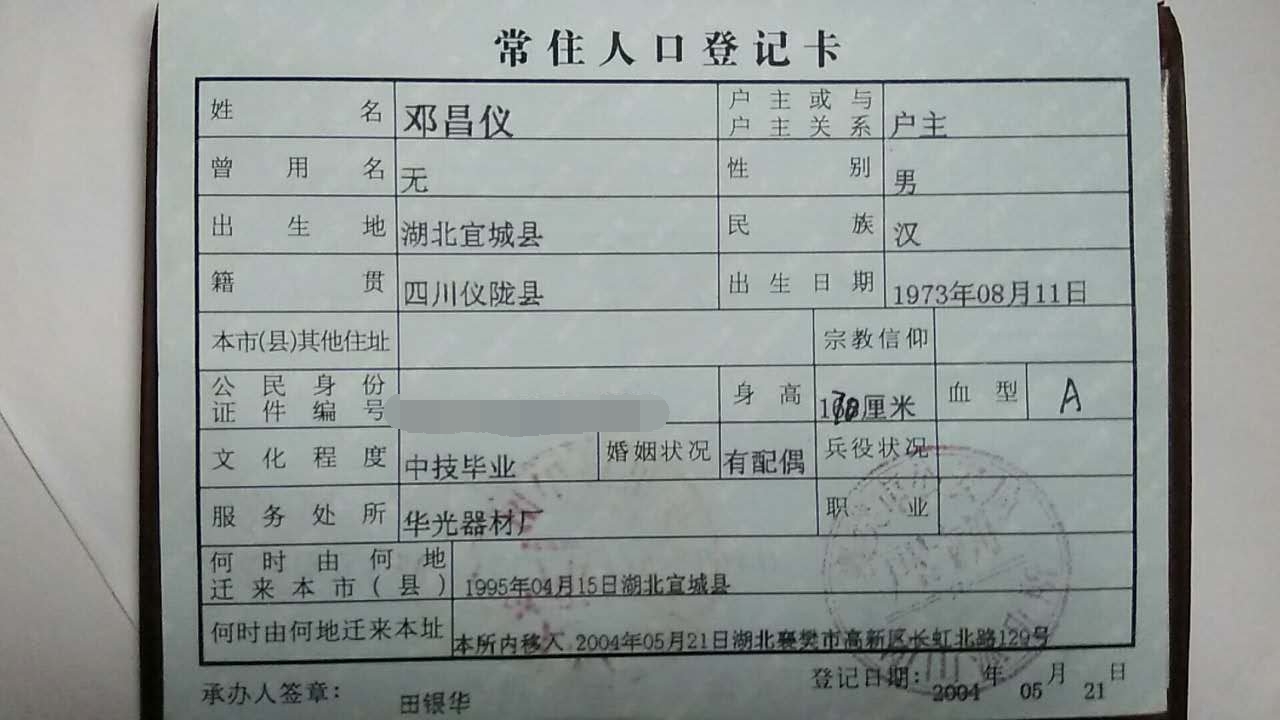 常住人口登记卡
姓名 邓昌仪 户主或与户主关系 户主
曾用名 无 性别 男
出生地 湖北宜城县 民族 汉
籍贯 四川仪陇县 出生日期 1973年08月11日
本市(县)其他住址 宗教信仰
公民身份证件编号 身高 170厘米 血型 A
文化程度 中技毕业 婚姻状况 有配偶 兵役状况
服务处所 华光器材厂 职业
何时由何地迁来本市(县) 1995年04月15日湖北宜城县
何时由何地迁来本址 本所内移入 2004年05月21日湖北襄樊市高新区长虹北路129号
承办人签章: 田银华 登记日期: 2004年05月21日